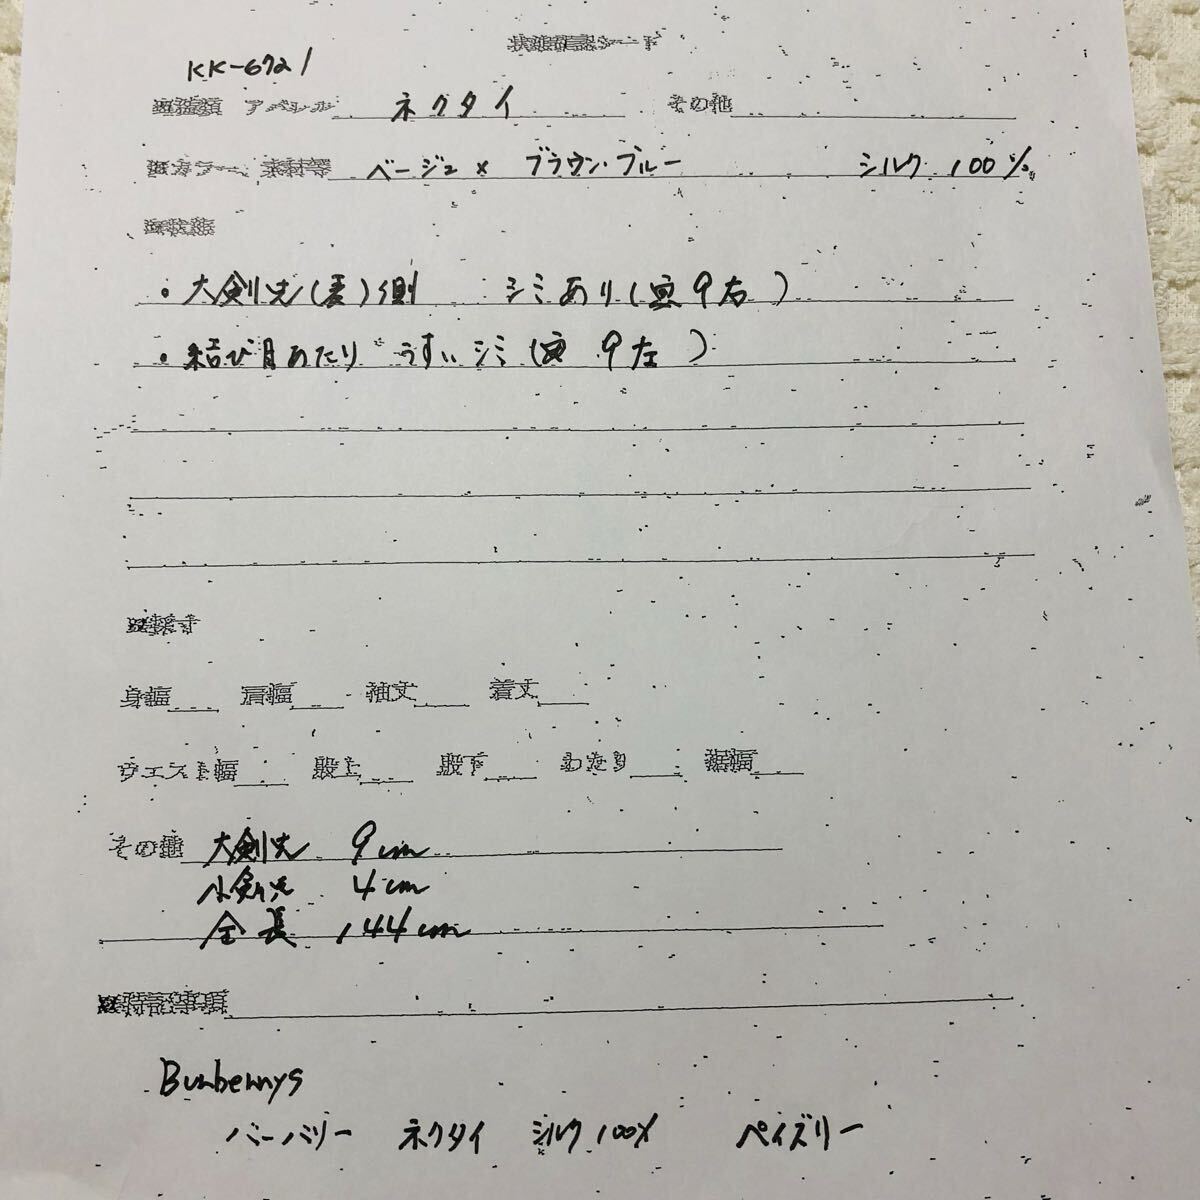 状態確認シート
KK-6721
■種類 アパレル ネクタイ その他
■カラー、素材等 ベージュ × ブラウン・ブルー シルク 100%
■状態
・大剣先(裏)側 シミあり(画 9右)
・結び目あたり うすいシミ(画 9左)
■採寸
身幅 肩幅 袖丈 着丈
ウエスト幅 股上 股下 わたり 裾幅
その他 大剣先 9cm
小剣先 4cm
全長 144cm
■特記事項
Burberrys
バーバリー ネクタイ シルク100% ペイズリー